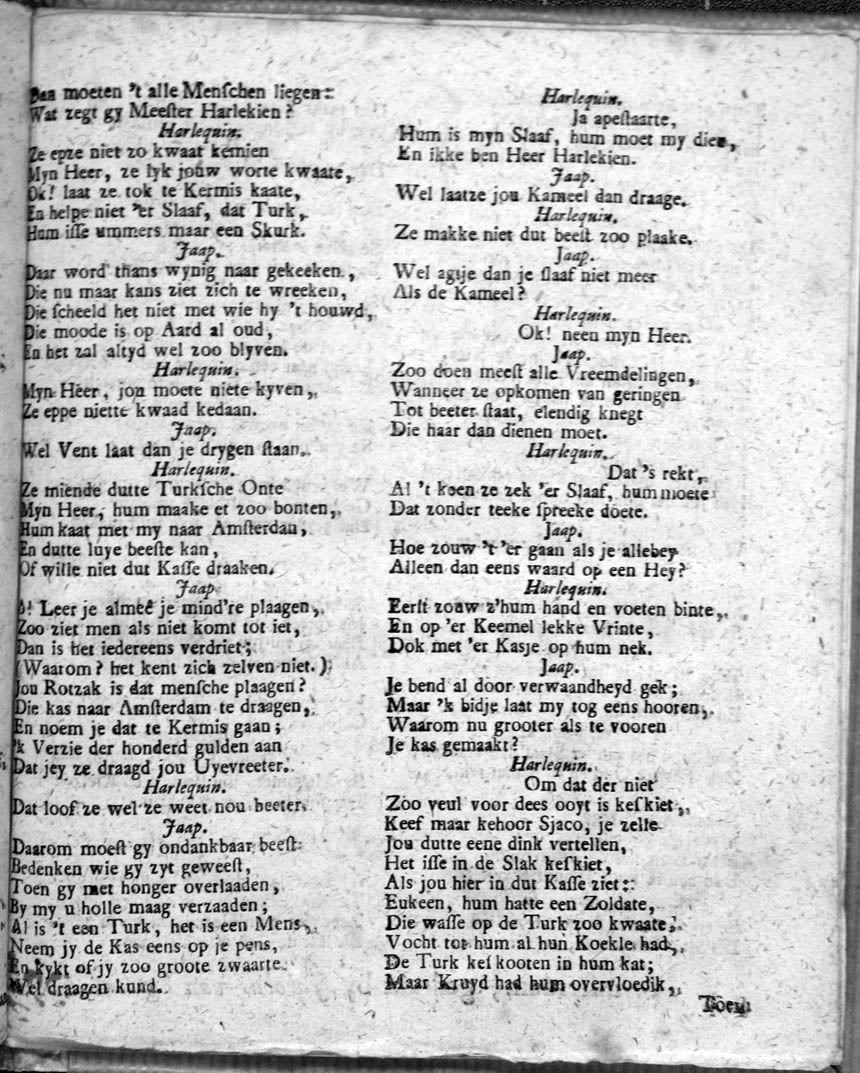 Dan moeten 't alle Menſchen liegen:
Wat zegt gy Meeſter Harlekien?
Harlequin.
Ze epze niet zo kwaat kemien
Myn Heer, ze lyk jouw worte kwaate,
Ok! laat ze tok te Kermis kaate,
En helpe niet 'er Slaaf, dat Turk,
Hum iſſe ummers maar een Skurk.
Jaap.
Daar word thans wynig naar gekeeken,
Die nu maar kans ziet zich te wreeken,
Die ſcheeld het niet met wie hy 't houwd,
Die moode is op Aard al oud,
En het zal altyd wel zoo blyven.
Harlequin.
Myn Heer, jou moete niete kyven,
Ze eppe niette kwaad kedaan.
Jaap.
Wel Vent laat dan je drygen ſtaan.
Harlequin.
Ze miende dutte Turkſche Onte
Myn Heer, hum maake et zoo bonten,
Hum kaat met my naar Amſterdan,
En dutte luye beeſte kan,
Of wille niet dut Kaſſe draaken.
Jaap
ô! Leer je almeê je mind're plaagen,
Zoo ziet men als niet komt tot iet,
Dan is het iedereens verdriet;
(Waarom? het kent zich zelven niet.)
Jou Rotzak is dat menſche plaagen?
Die kas naar Amſterdam te draagen,
En noem je dat te Kermis gaan;
'k Verzie der honderd gulden aan
Dat jey ze draagd jou Uyevreeter.
Harlequin.
Dat loof ze wel ze weet nou beeter.
Jaap.
Daarom moeſt gy ondankbaar beeſt
Bedenken wie gy zyt geweeſt,
Toen gy met honger overlaaden,
By my u holle maag verzaaden;
Al is 't een Turk, het is een Mens,
Neem jy de Kas eens op je pens,
En kykt of jy zoo groote zwaarte
Wel draagen kund.
Harlequin.
Ja apeſtaarte,
Hum is myn Slaaf, hum moet my dien,
En ikke ben Heer Harlekien.
Jaap.
Wel laatze jou Kameel dan draage.
Harlequin.
Ze makke niet dut beeſt zoo plaake.
Jaap.
Wel agtje dan je ſlaaf niet meer
Als de Kameel?
Harlequin.
Ok! neen myn Heer.
Jaap.
Zoo doen meeſt alle Vreemdelingen,
Wanneer ze opkomen van geringen
Tot beeter ſtaat, elendig knegt
Die haar dan dienen moet.
Harlequin.
Dat 's rekt,
Al 't koen ze zek 'er Slaaf, hum moete
Dat zonder teeke ſpreeke doete.
Jaap.
Hoe zouw 't 'er gaan als je allebey
Alleen dan eens waard op een Hey?
Harlequin.
Eerſt zouw z'hum hand en voeten binte,
En op 'er Keemel lekke Vrinte,
Dok met 'er Kasje op hum nek.
Jaap.
Je bend al door verwaandheyd gek;
Maar 'k bidje laat my tog eens hooren,
Waarom nu grooter als te vooren
Je kas gemaakt?
Harlequin.
Om dat der niet
Zoo veul voor dees ooyt is keſkiet,
Keef maar kehoor Sjaco, je zelle
Jou dutte eene dink vertellen,
Het iſſe in de Slak keſkiet,
Als jou hier in dut Kaſſe ziet:
Eukeen, hum hatte een Zoldate,
Die waſſe op de Turk zoo kwaate,
Vocht tot hum al hun Koekle had,
De Turk keſkooten in hum kat;
Maar Kruyd had hum overvloedik,